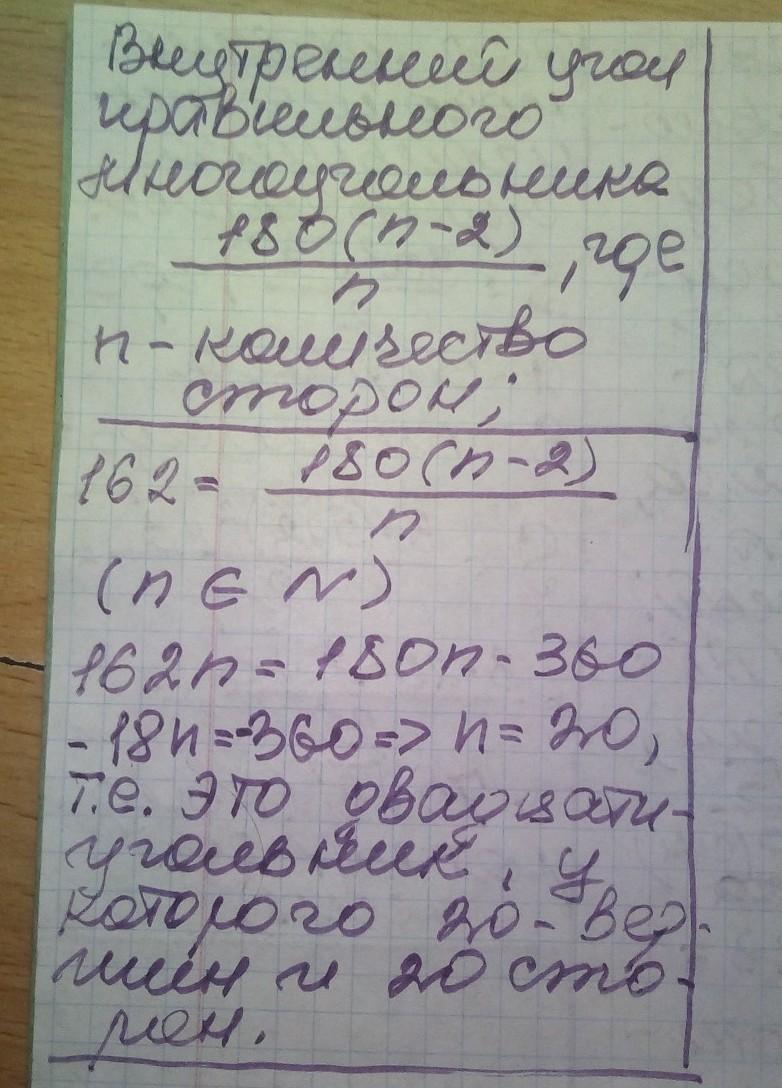 Внутренний угол
правильного
многоугольника
180(n-2)
, где
n
n - количество
сторон;
162 = 180(n-2)
n
(n ∈ N)
162n = 180n - 360
-18n = -360 => n = 20,
т.е. это двадцати-
угольник, у
которого 20 - вер-
шин и 20 сто-
рон.